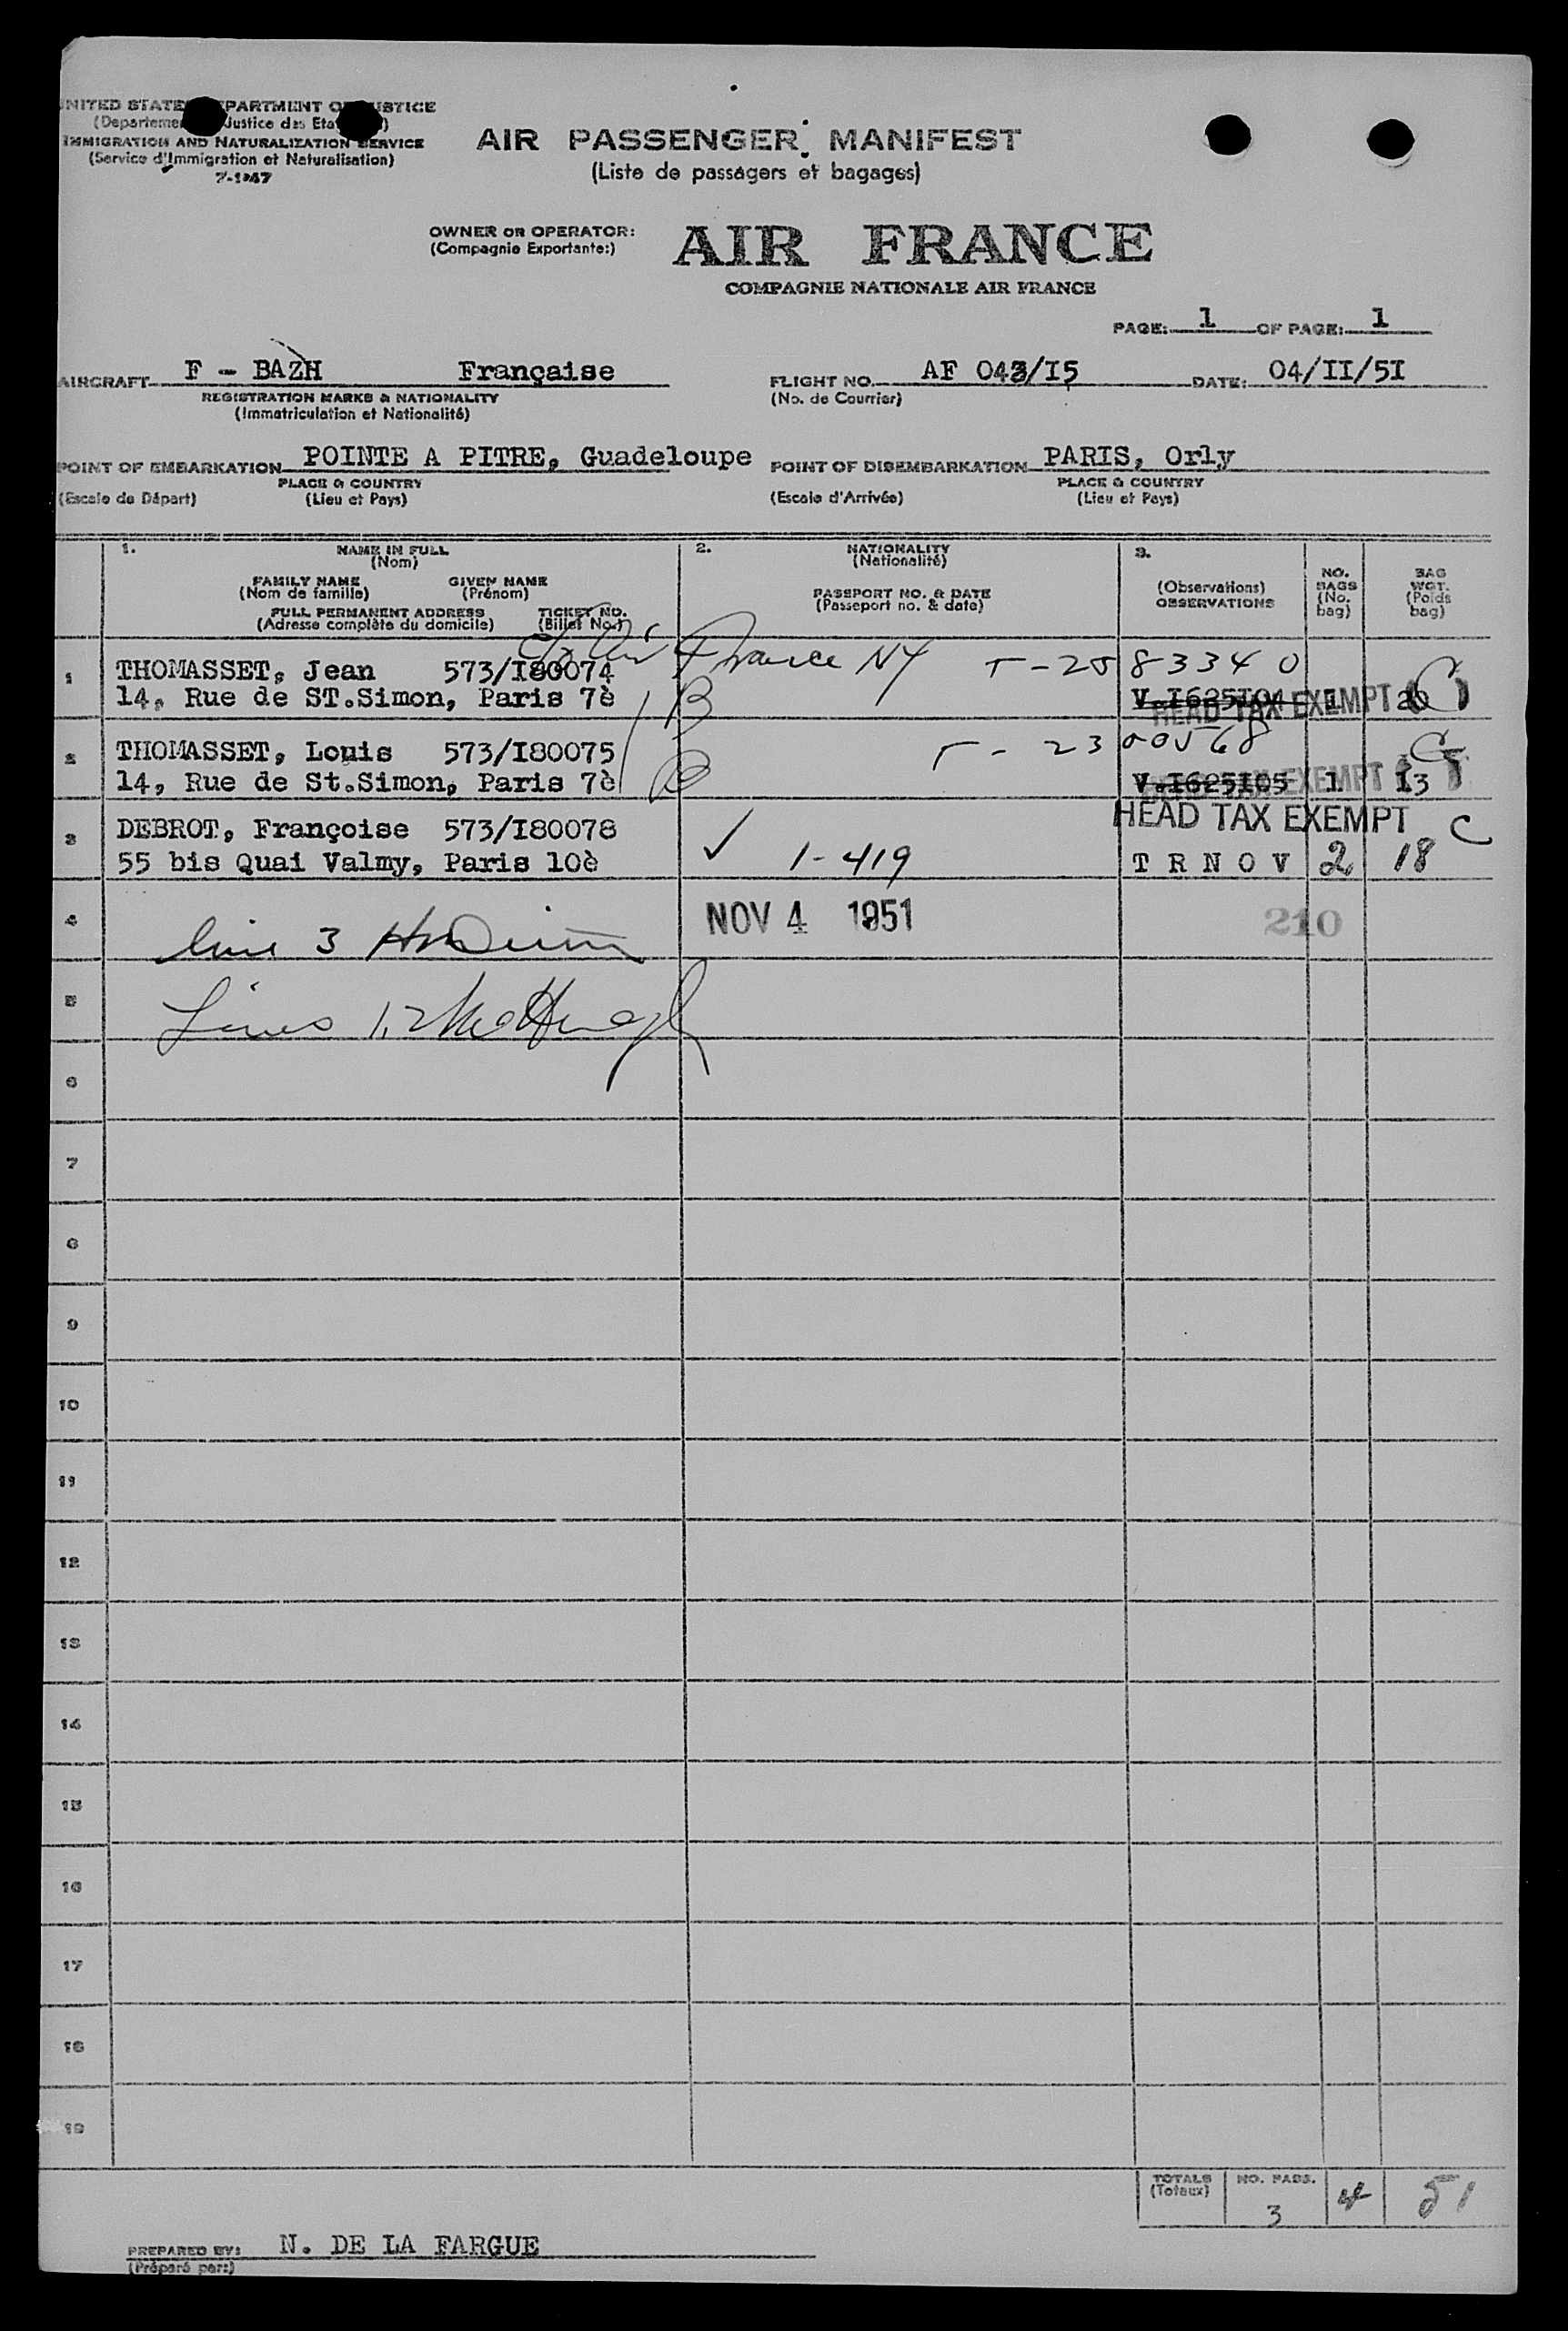 UNITED STATES DEPARTMENT OF JUSTICE
(Departement Justice des Etats)
IMMIGRATION AND NATURALIZATION SERVICE
(Service d'Immigration et Naturalisation)
7-1947
AIR PASSENGER MANIFEST
(Liste de passagers et bagages)
OWNER OR OPERATOR:
(Compagnie Exportante:)
AIR FRANCE
COMPAGNIE NATIONALE AIR FRANCE
PAGE: 1 OF PAGE: 1
AIRCRAFT F - BAZH Française
REGISTRATION MARKS & NATIONALITY
(Immatriculation et Nationalité)
FLIGHT NO. AF 043/I5 DATE: 04/II/5I
(No. de Courrier)
POINT OF EMBARKATION POINTE A PITRE, Guadeloupe
PLACE & COUNTRY
(Escale de Départ) (Lieu et Pays)
POINT OF DISEMBARKATION PARIS, Orly
PLACE & COUNTRY
(Escale d'Arrivée) (Lieu et Pays)
1. NAME IN FULL
(Nom)
FAMILY NAME GIVEN NAME
(Nom de famille) (Prénom)
FULL PERMANENT ADDRESS TICKET NO.
(Adresse complète du domicile) (Billet No.)
2. NATIONALITY
(Nationalité)
PASSPORT NO. & DATE
(Passeport no. & date)
3.
(Observations)
OBSERVATIONS
NO.
BAGS
(No.
bag)
BAG
WGT.
(Poids
bag)
Air France NY T-25 83340
1 THOMASSET, Jean 573/I80074
14, Rue de ST.Simon, Paris 7è B V.I625I04 1 20 C
HEAD TAX EXEMPT
T-23 00568
2 THOMASSET, Louis 573/I80075 C
14, Rue de St.Simon, Paris 7è V.I625I05 1 I3
HEAD TAX EXEMPT
HEAD TAX EXEMPT C
3 DEBROT, Françoise 573/I80078
55 bis Quai Valmy, Paris 10è ✓ 1-419 T R N O V 2 18
4 NOV 4 1951 210
line 3
5 Lines 1, 2
6
7
8
9
10
11
12
13
14
15
16
17
18
19
TOTALS NO. PASS.
(Totaux) 3 4 51
PREPARED BY: N. DE LA FARGUE
(Préparé par:)